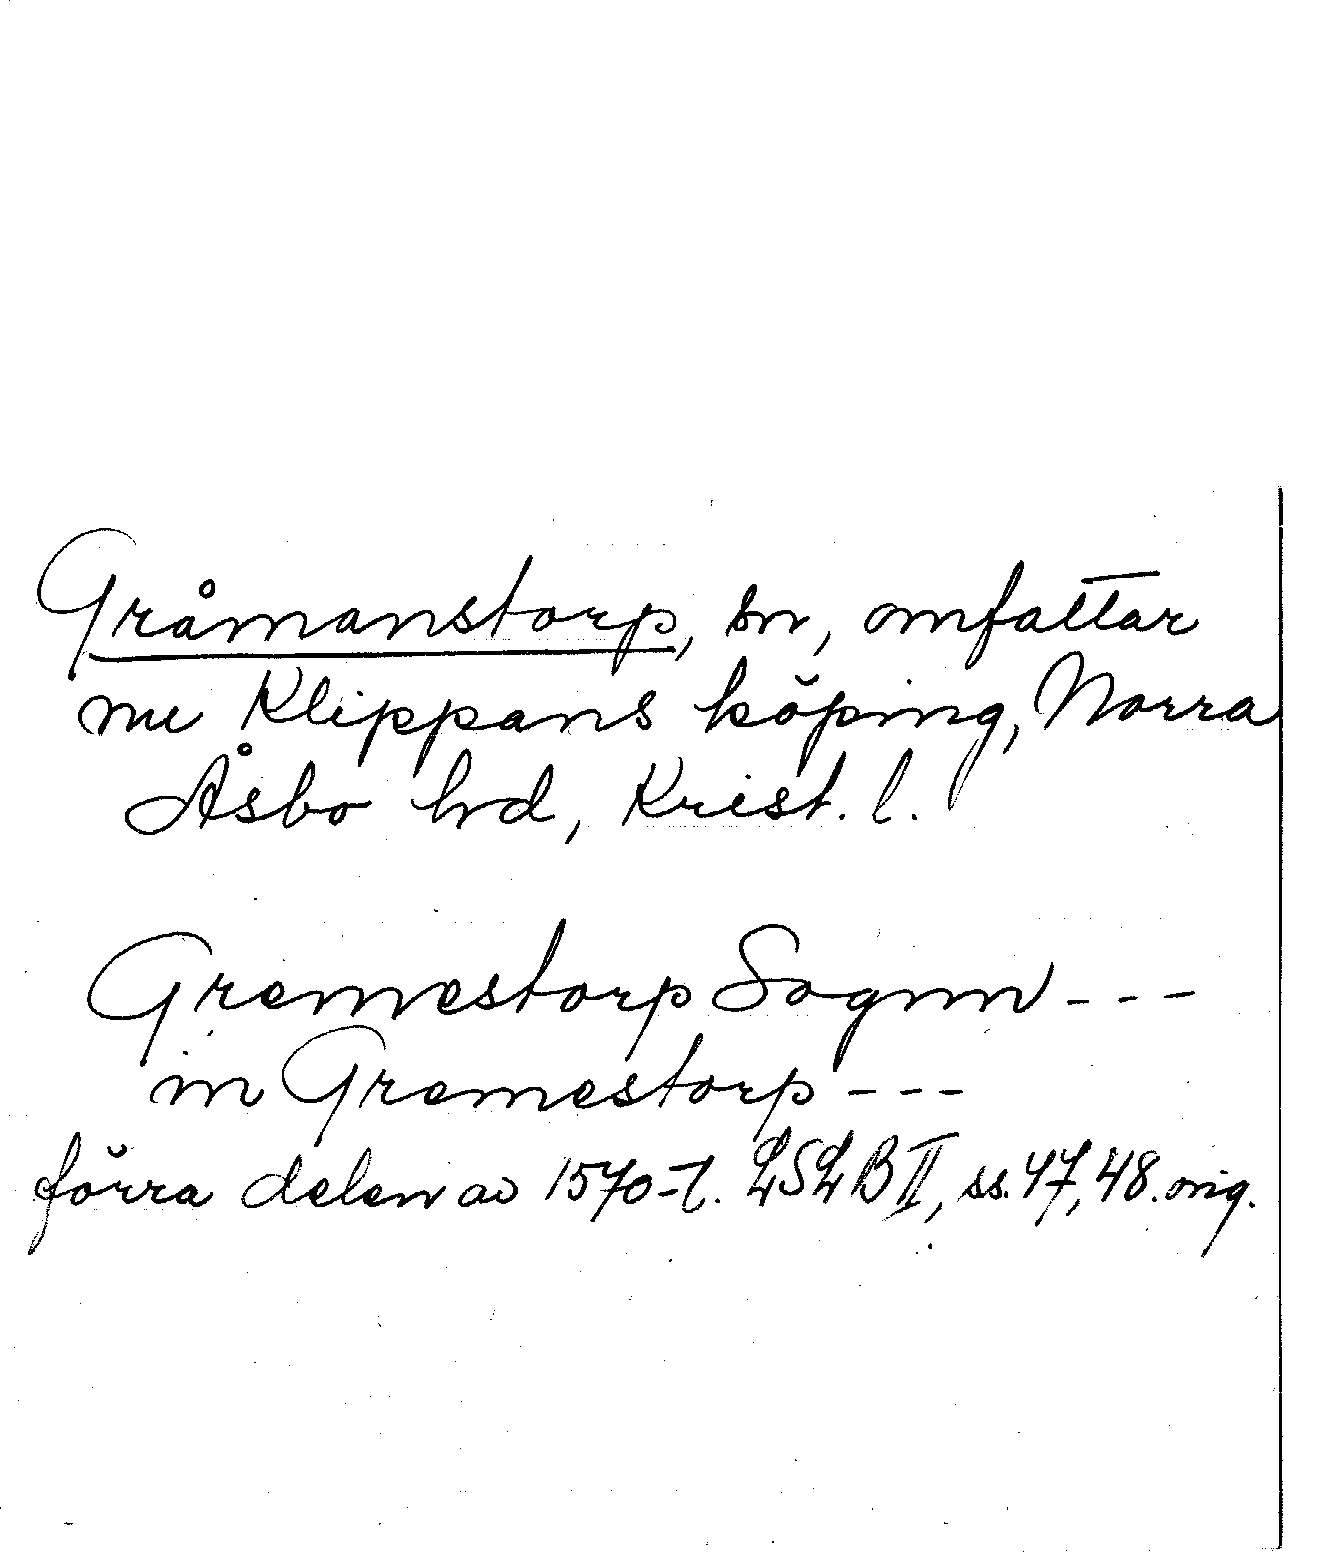 Gråmanstorp, sn, omfattar
nu Klippans köping, Norra
Åsbo hd, Krist. l.
Gremestorp Sognn ---
in Gremestorp ---
förra delen av 1570-t. LSLB II, ss. 47, 48. orig.